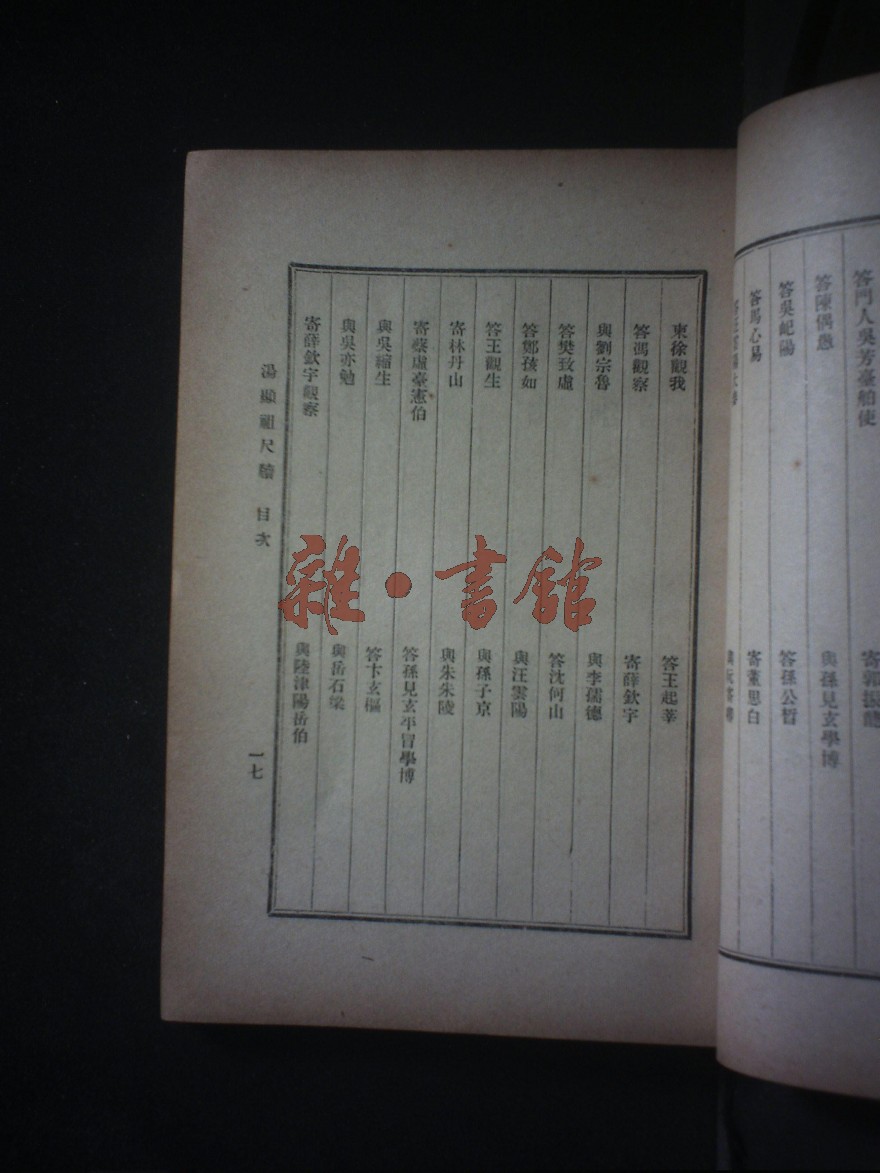 答門人吳芳臺舶使
寄郭振龍
答陳偶愚
與孫見玄學博
答吳屺陽
答孫公晳
答馬心易
寄董思白
柬徐觀我
答王起莘
答馮觀察
寄薛欽宇
與劉宗魯
與李儒德
答樊致虛
答沈何山
答鄭孩如
與汪雲陽
答王觀生
與孫子京
寄林丹山
與朱朱陵
寄蔡虛臺憲伯
答孫見玄平冒學博
與吳繙生
答卞玄樞
與吳亦勉
與岳石梁
寄薛欽宇觀察
與陸津陽岳伯
湯顯祖尺牘 目次
一七
雜·書館